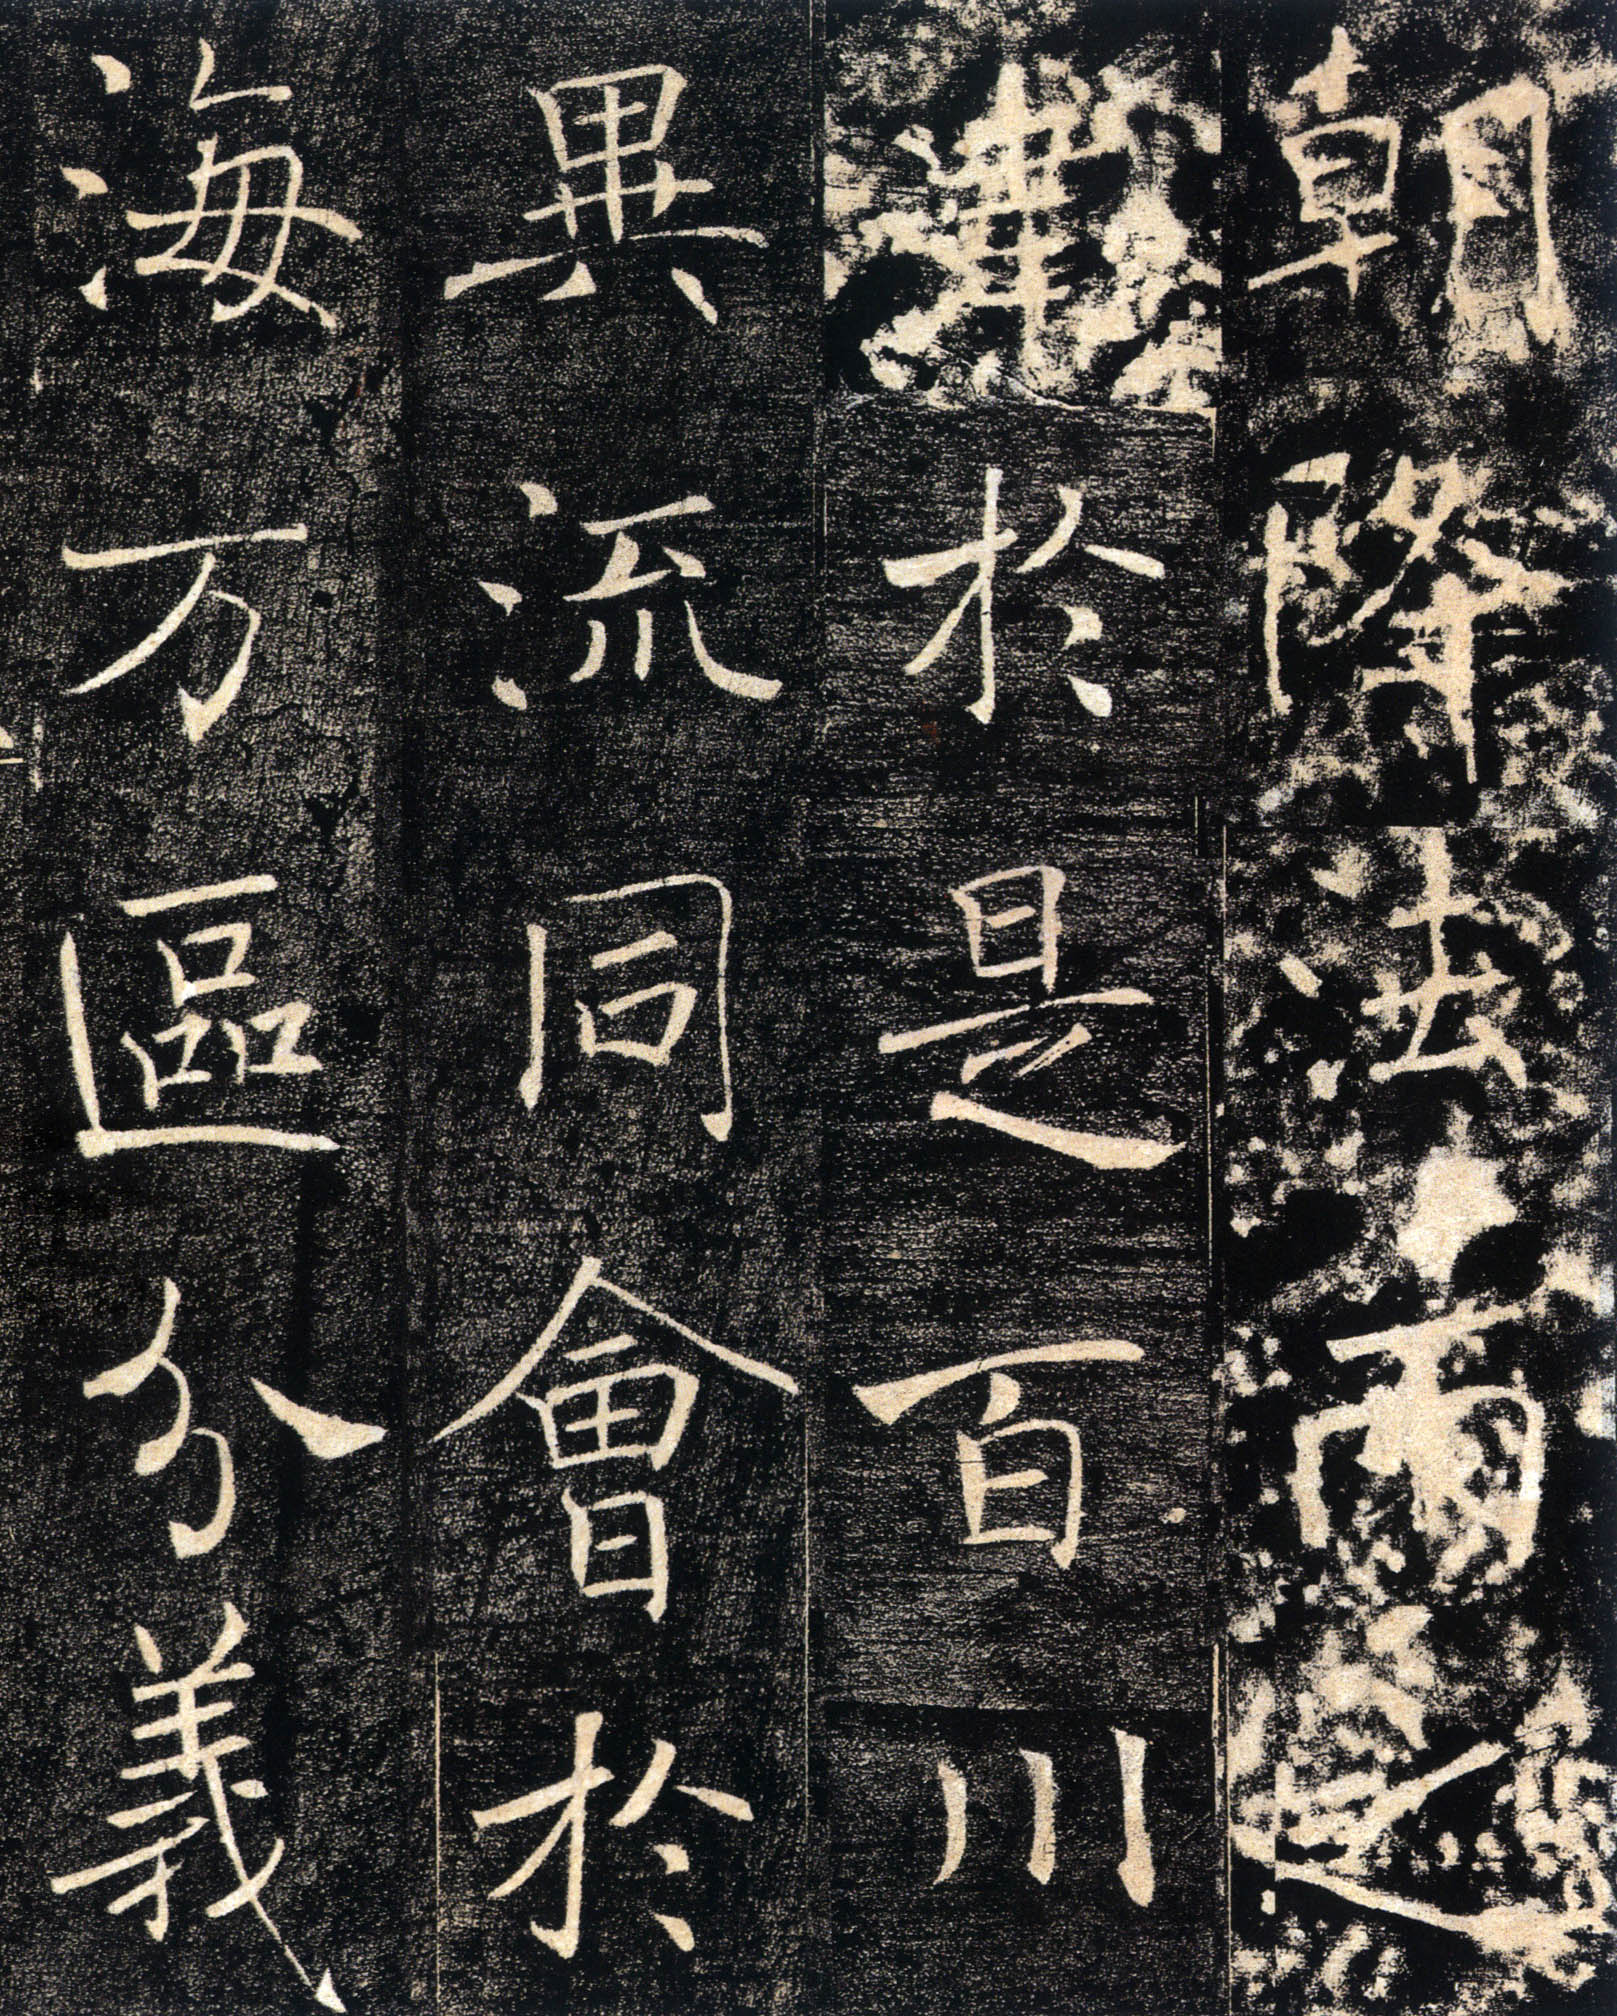 朝降法雨
於是百川
異流同會於
海万區分義